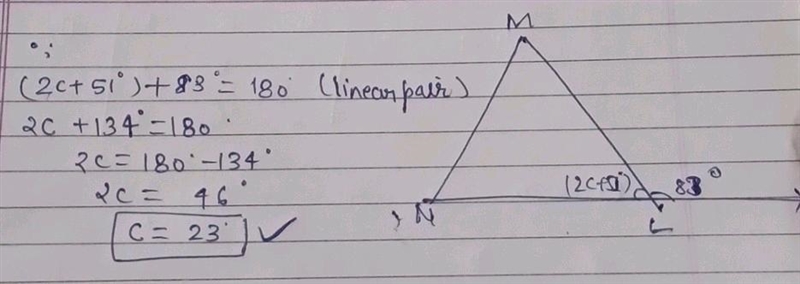 ∵
(2c+51°)+83°=180° (linear pair)
2c+134°=180°
2c=180°-134°
2c= 46°
c= 23° ✓
M
(2c+51°) 83°
N
L